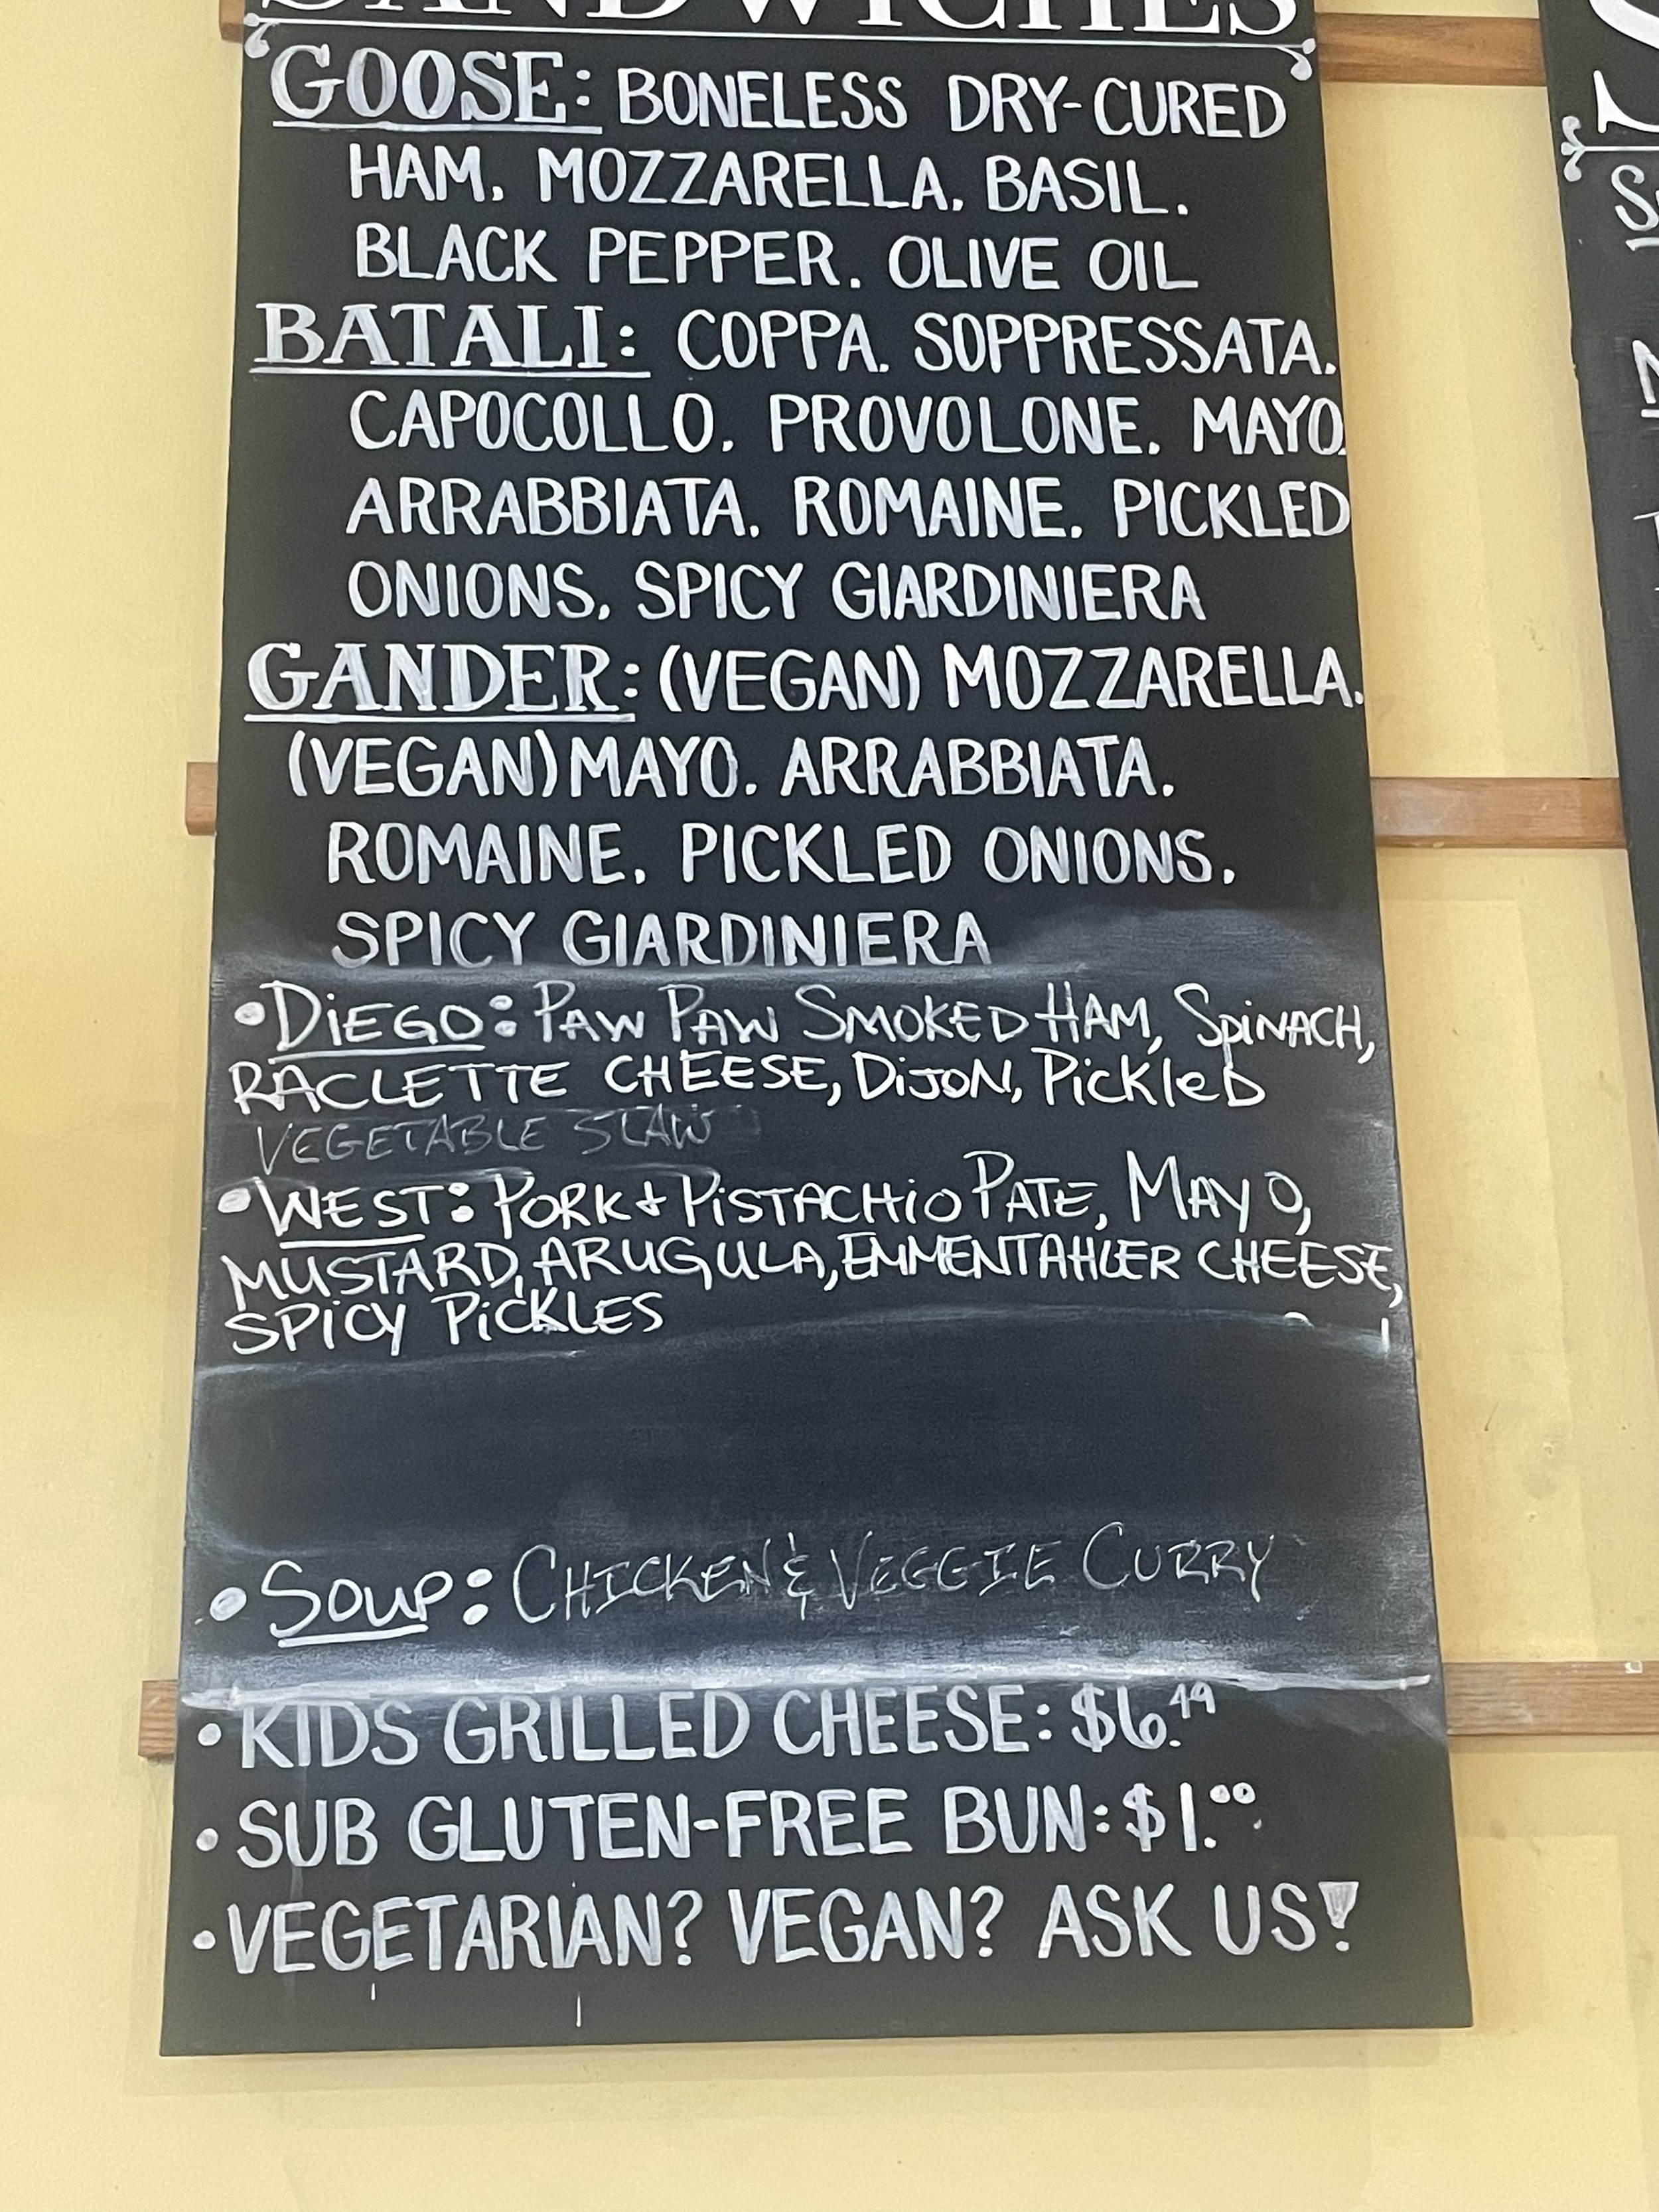 SANDWICHES
GOOSE: BONELESS DRY-CURED
HAM. MOZZARELLA. BASIL.
BLACK PEPPER. OLIVE OIL
BATALI: COPPA. SOPPRESSATA.
CAPOCOLLO. PROVOLONE. MAYO.
ARRABBIATA. ROMAINE. PICKLED
ONIONS. SPICY GIARDINIERA
GANDER: (VEGAN) MOZZARELLA.
(VEGAN) MAYO. ARRABBIATA.
ROMAINE. PICKLED ONIONS.
SPICY GIARDINIERA
•DiEGO: PAW PAW SMOKED HAM, SpiNACH,
RACLETTE CHEESE, DiJON, PickleD
VEGETABLE SLAW
•WEST: PORK + PiSTACHiO PATE, MAYO,
MUSTARD, ARUGULA, EMMENTAHLER CHEESE,
SPiCY PiCKLES
•SOUP: CHICKEN & VEGGIE CURRY
•KIDS GRILLED CHEESE: $6.49
•SUB GLUTEN-FREE BUN: $1.00
•VEGETARIAN? VEGAN? ASK US!